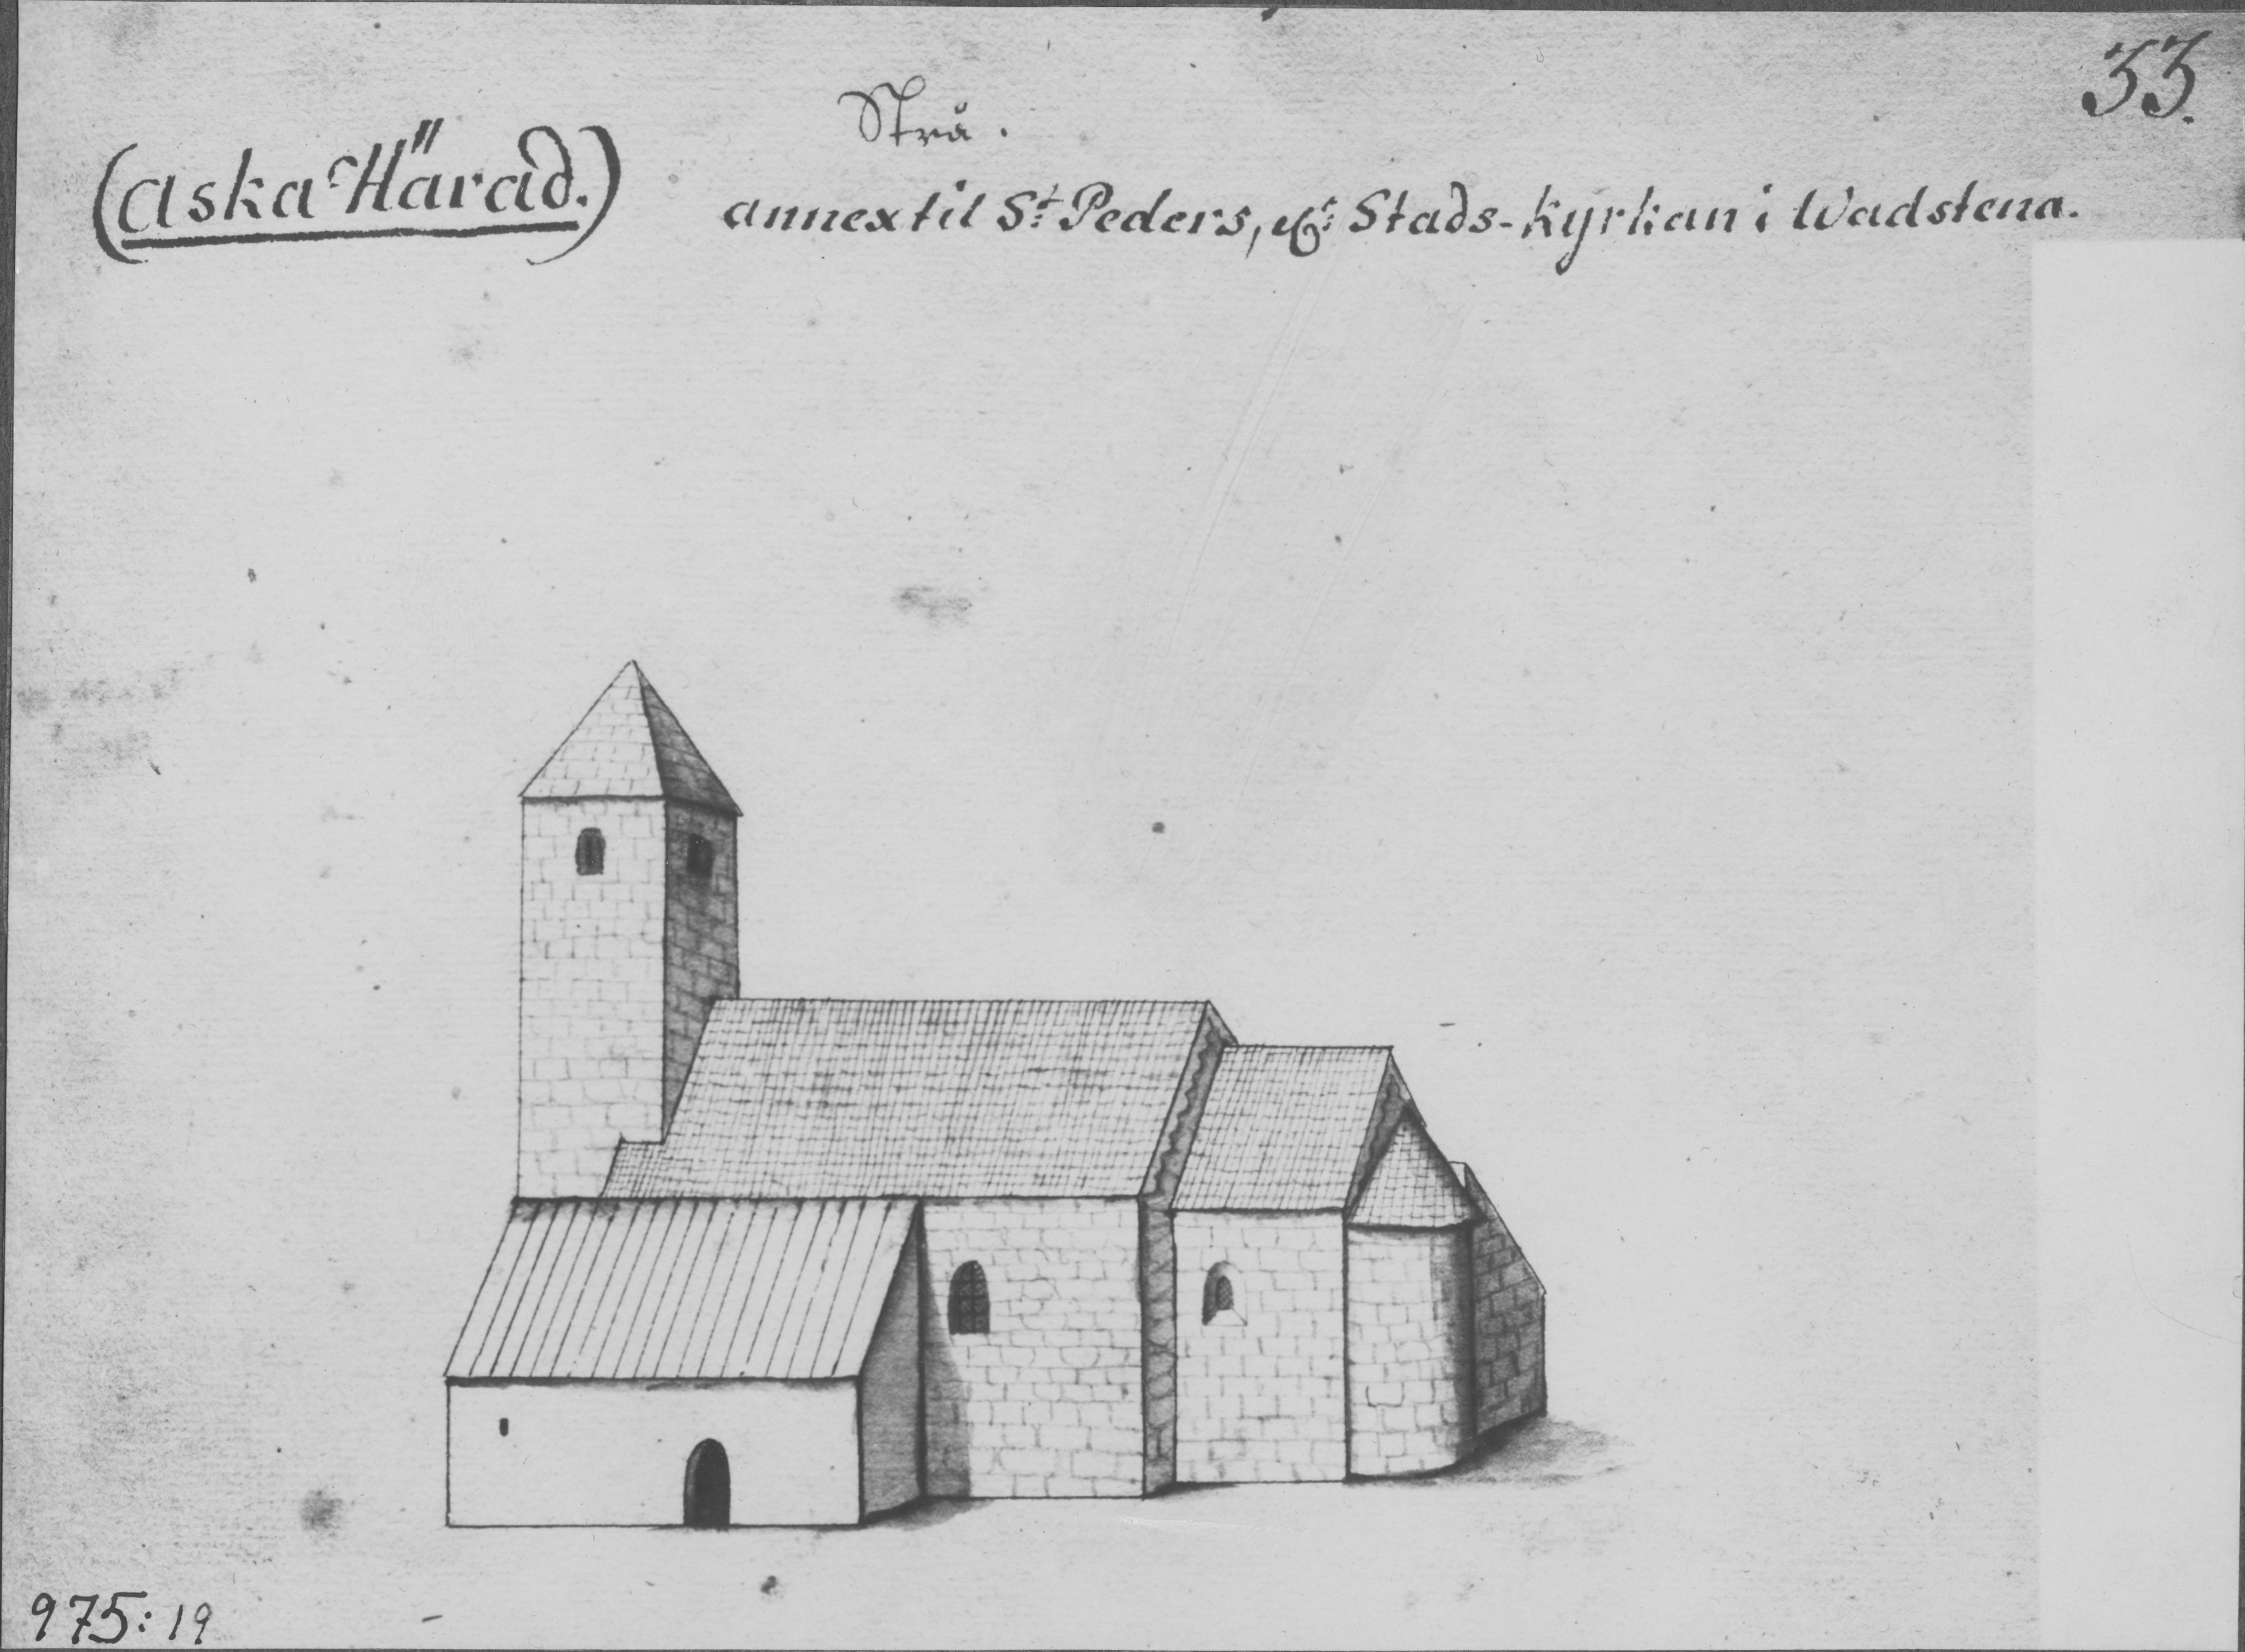 33.
Strå.
(Aska Härad.)
annex til St. Peders, el. Stads-kyrkan i Wadstena.
975:19